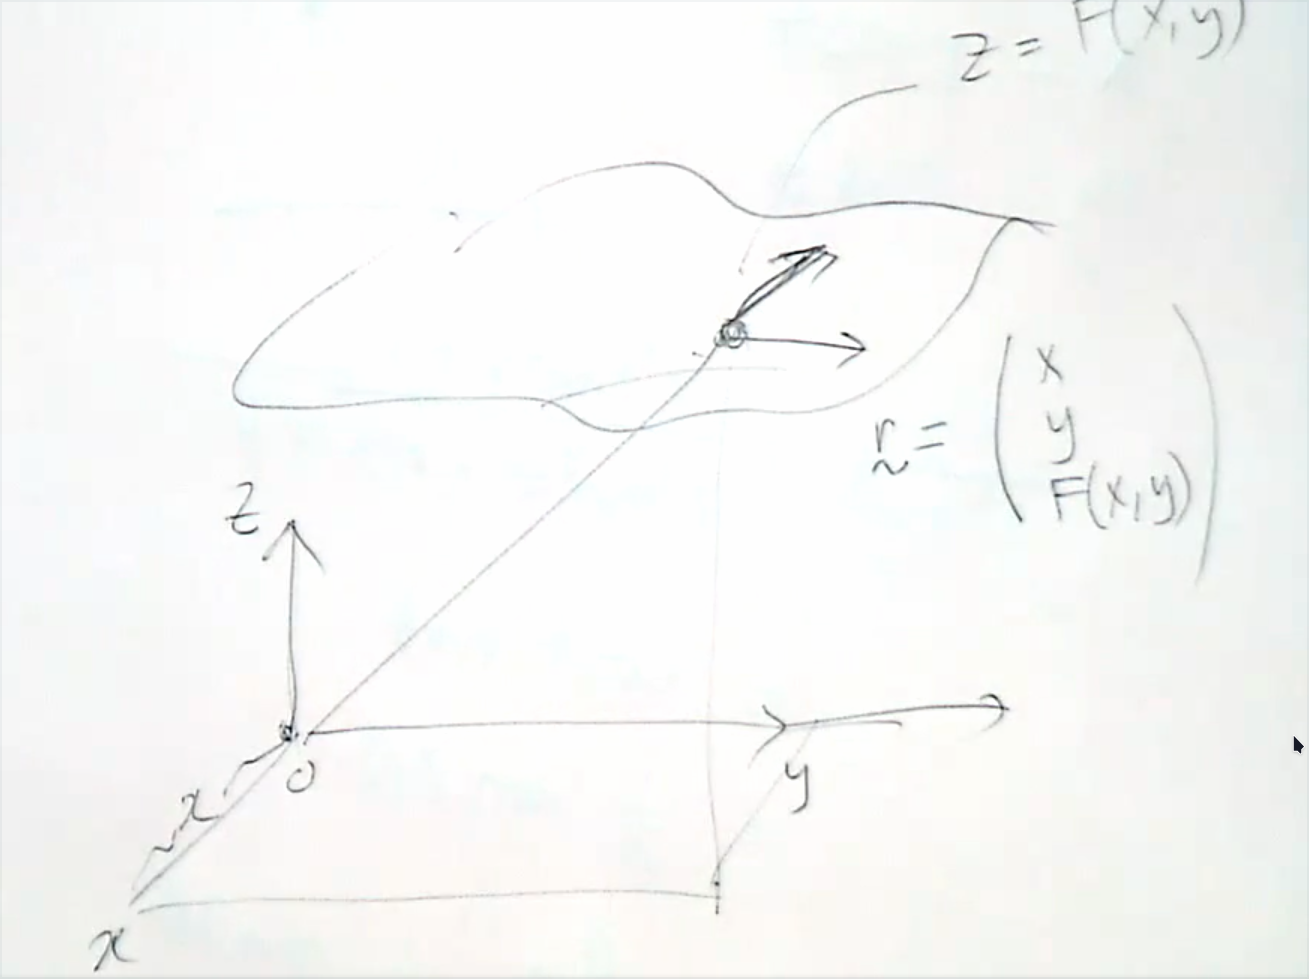 z = F(x,y)
r = ( x
y
F(x,y) )
z
x
0
y
x